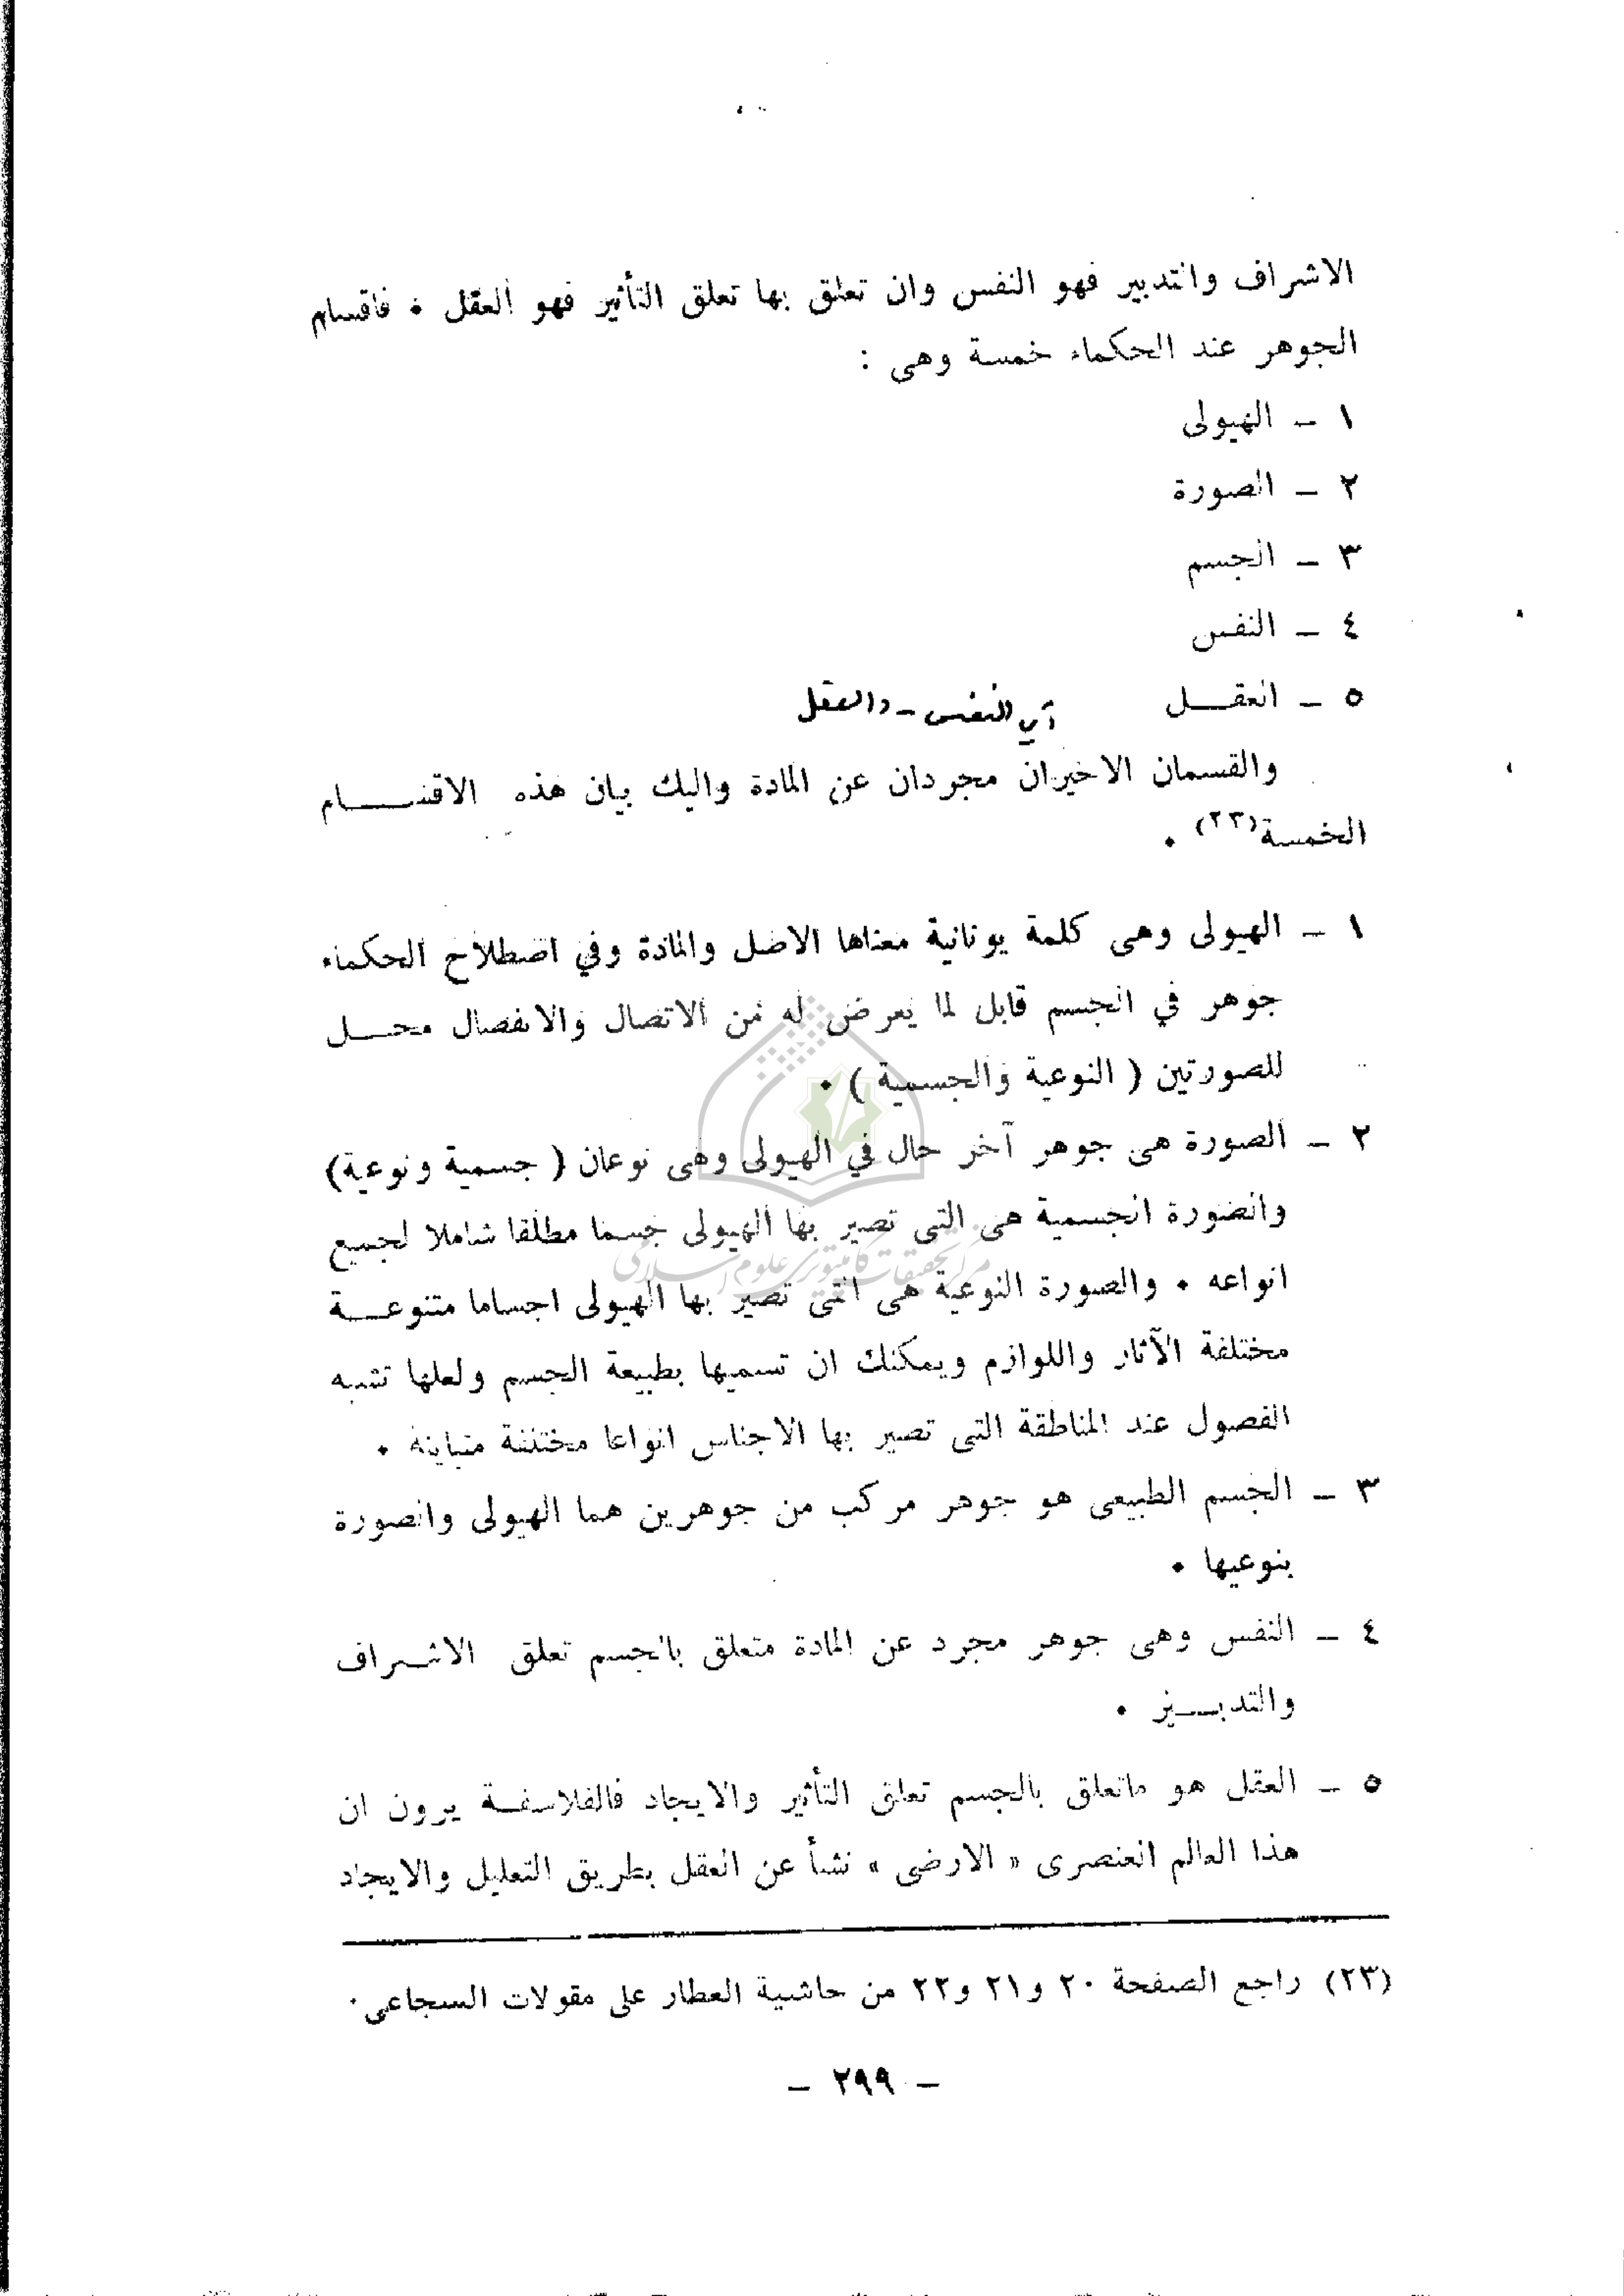 الاشراف والتدبير فهو النفس وان تعلق بها تعلق التأثير فهو العقل . فاقسام
الجوهر عند الحكماء خمسة وهي :
١ ـ الهيولى
٢ ـ الصورة
٣ ـ الجسم
٤ ـ النفس
٥ ـ العقـــل
أي النفس ـ والعقل
والقسمان الاخيران مجردان عن المادة واليك بيان هذه الاقســـام
الخمسة(٢٣) .
١ ـ الهيولى وهى كلمة يونانية معناها الاصل والمادة وفي اصطلاح الحكماء
جوهر في الجسم قابل لما يعرض له من الاتصال والانفصال محـــل
للصورتين ( النوعية والجسمية ) .
٢ ـ الصورة هى جوهر آخر حال في الهيولى وهى نوعان ( جسمية ونوعية)
والصورة الجسمية هى التى تصير بها الهيولى جسما مطلقا شاملا لجميع
مركز تحقيقات كامپيوترى علوم اسلامى
انواعه . والصورة النوعية هى التى تصير بها الهيولى اجساما متنوعـــة
مختلفة الآثار واللوازم ويمكنك ان تسميها بطبيعة الجسم ولعلها تشبه
الفصول عند المناطقة التى تصير بها الاجناس انواعا مختلفة متباينة .
٣ ـ الجسم الطبيعى هو جوهر مركب من جوهرين هما الهيولى والصورة
بنوعيها .
٤ ـ النفس وهى جوهر مجرد عن المادة متعلق بالجسم تعلق الاشـــراف
والتدبـــير .
٥ ـ العقل هو ماتعلق بالجسم تعلق التأثير والايجاد فالفلاسفـــة يرون ان
هذا العالم العنصرى « الارضى » نشأ عن العقل بطريق التعليل والايجاد
(٢٣) راجع الصفحة ٢٠ و٢١ و٢٢ من حاشية العطار على مقولات السجاعى.
ـ ٢٩٩ ـ